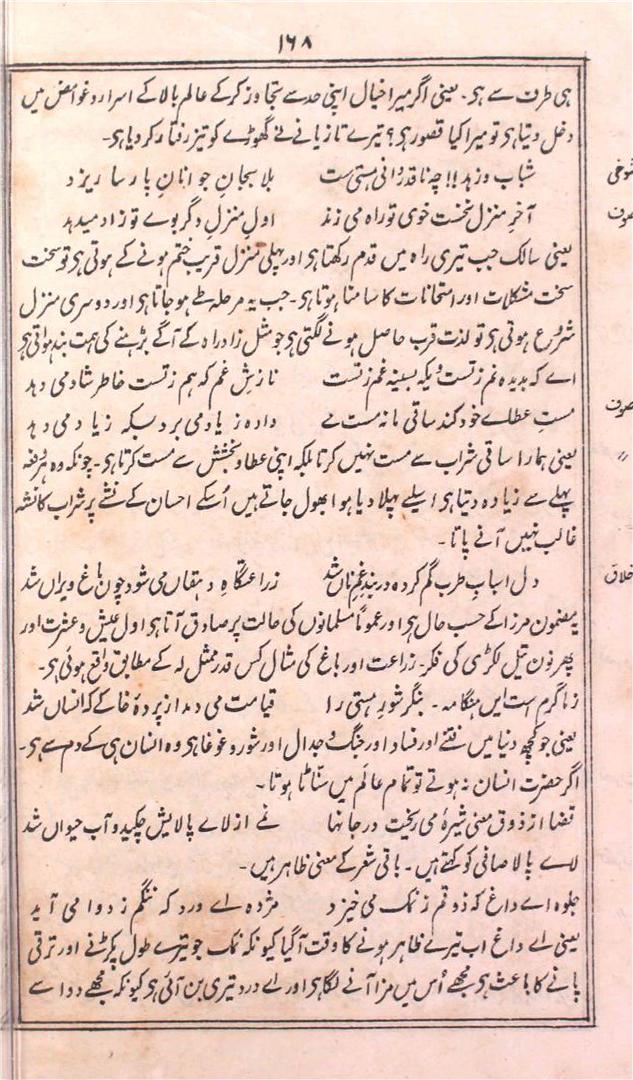 ۱۶۸
ہی طرف سے ہی۔ یعنی اگر میرا خیال اپنی حد سے تجاوز کر کے عالم بالا کے اسرار و غوامض میں
دخل دیتا ہی تو میرا کیا قصور ہی؟ تیرے تازیانے نے گھوڑے کو تیز رفتار کر دیا ہی۔
شوخی
شباب و زہد!! چہ ناقدردانی ہستی ست بلا بجان جوانان پارسا ریزد
صوف
آخر منزل نخست خوی تو راہ می زند اول منزل دگر بوے تو زاد میدہد
یعنی سالک جب تیری راہ میں قدم رکھتا ہی اور پہلی منزل قریب ختم ہونے کے ہوتی ہی تو سخت
سخت مشکلات اور امتحانات کا سامنا ہوتا ہی۔ جب یہ مرحلہ طے ہو جاتا ہی اور دوسری منزل
شروع ہوتی ہی تو لذت قرب حاصل ہونے لگتی ہی جو مثل زاد راہ کے آگے بڑہنے کی ہمت بندہواتی ہی
اے کہ بدیدہ نم ز تست ویکہ بسینہ غم ز تست نازش غم کہ ہم ز تست خاطر شاد می دہد
صوف
مست عطاے خود کند ساقی ما نہ مست مے دادہ ز یاد می برد بسکہ زیاد می دہد
〃
یعنی ہمارا ساقی شراب سے مست نہیں کرتا بلکہ اپنی عطا و بخشش سے مست کرتا ہی۔ چونکہ وہ ہر دفعہ
پہلے سے زیادہ دیتا ہی اسلیے پہلا دیا ہوا بھول جاتے ہیں اُسکے احسان کے نشے پر شراب کا نشہ
غالب نہیں آنے پاتا۔
خلاق
دل اسباب طرب گم کردہ در بند غم نان شد زراعتگاہ دہقاں می شود چون باغ ویران شد
یہ مضمون مرزا کے حسب حال ہی اور عموماً مسلمانوں کی حالت پر صادق آتا ہی اول عیش و عشرت اور
پھر نون تیل لکڑی کی فکر۔ زراعت اور باغ کی مثال کس قدر ممثل لہ کے مطابق واقع ہوئی ہی۔
زما گرم ست ایں ہنگامہ۔ بنگر شور ہستی را قیامت می دمد از پردۂ خاکے کہ انساں شد
یعنی جو کچھ دنیا میں فتنے اور فساد اور جنگ و جدال اور شور و غوغا ہی وہ انسان ہی کے دم سے ہی۔
اگر حضرت انسان نہ ہوتے تو تمام عالم میں سنّاٹا ہوتا۔
قضا از ذوق معنی شیرۂ می ریخت در جانہا نمے از لاے پالایش چکید و آب حیواں شد
لاے پالا صافی کو کہتے ہیں۔ باقی شعر کے معنی ظاہر ہیں۔
جلوہ اے داغ کہ ذوقم ز نمک می خیزد مژدہ اے درد کہ ننگم ز دوا می آید
یعنی اے داغ اب تیرے ظاہر ہونے کا وقت آگیا کیونکہ نمک جو تیرے طول پکڑنے اور ترقی
پانے کا باعث ہی مجھے اُس میں مزا آنے لگا ہی اور اے درد تیری بن آئی ہی کیونکہ مجھے دوا سے